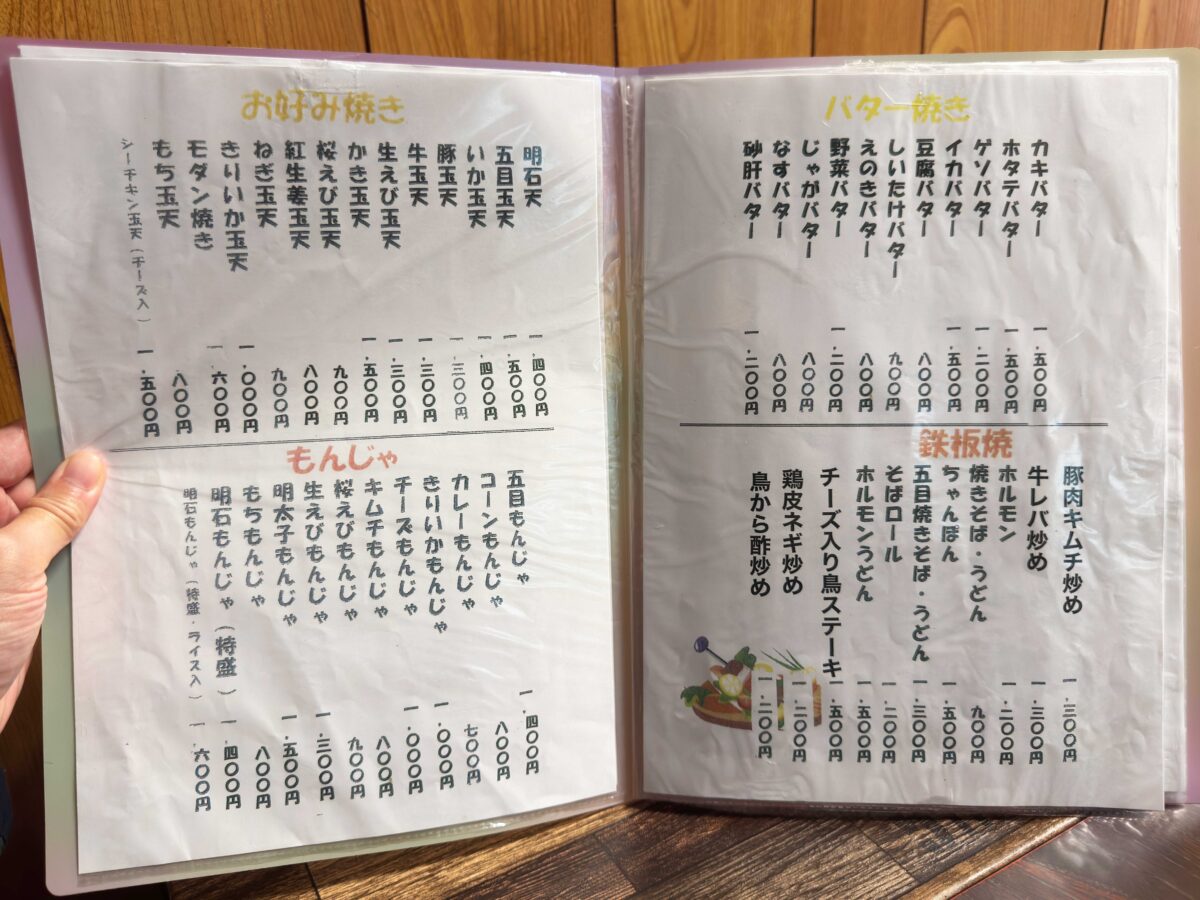 バター焼き
カキバター 一.五〇〇円
ホタテバター 一.五〇〇円
ゲソバター 一.二〇〇円
イカバター 一.五〇〇円
豆腐バター 八〇〇円
しいたけバター 九〇〇円
えのきバター 八〇〇円
野菜バター 一.二〇〇円
じゃがバター 八〇〇円
なすバター 八〇〇円
砂肝バター 一.二〇〇円
鉄板焼
豚肉キムチ炒め 一.三〇〇円
牛レバ炒め 一.三〇〇円
ホルモン 一.二〇〇円
焼きそば・うどん 九〇〇円
ちゃんぽん 一.五〇〇円
五目焼きそば・うどん 一.三〇〇円
そばロール 一.二〇〇円
ホルモンうどん 一.五〇〇円
チーズ入り鳥ステーキ 一.五〇〇円
鶏皮ネギ炒め 一.二〇〇円
鳥から酢炒め 一.二〇〇円
お好み焼き
明石天 一.四〇〇円
五目玉天 一.五〇〇円
いか玉天 一.四〇〇円
豚玉天 一.三〇〇円
牛玉天 一.三〇〇円
生えび玉天 一.三〇〇円
かき玉天 一.五〇〇円
桜えび玉天 九〇〇円
紅生姜玉天 八〇〇円
ねぎ玉天 九〇〇円
きりいか玉天 一.〇〇〇円
モダン焼き 一.六〇〇円
もち玉天 八〇〇円
シーチキン玉天(チーズ入) 一.五〇〇円
もんじゃ
五目もんじゃ 一.四〇〇円
コーンもんじゃ 八〇〇円
カレーもんじゃ 七〇〇円
きりいかもんじゃ 一.〇〇〇円
チーズもんじゃ 一.〇〇〇円
キムチもんじゃ 八〇〇円
桜えびもんじゃ 九〇〇円
生えびもんじゃ 一.三〇〇円
明太子もんじゃ 一.五〇〇円
もちもんじゃ 八〇〇円
明石もんじゃ(特盛) 一.四〇〇円
明石もんじゃ(特盛・ライス入) 一.六〇〇円